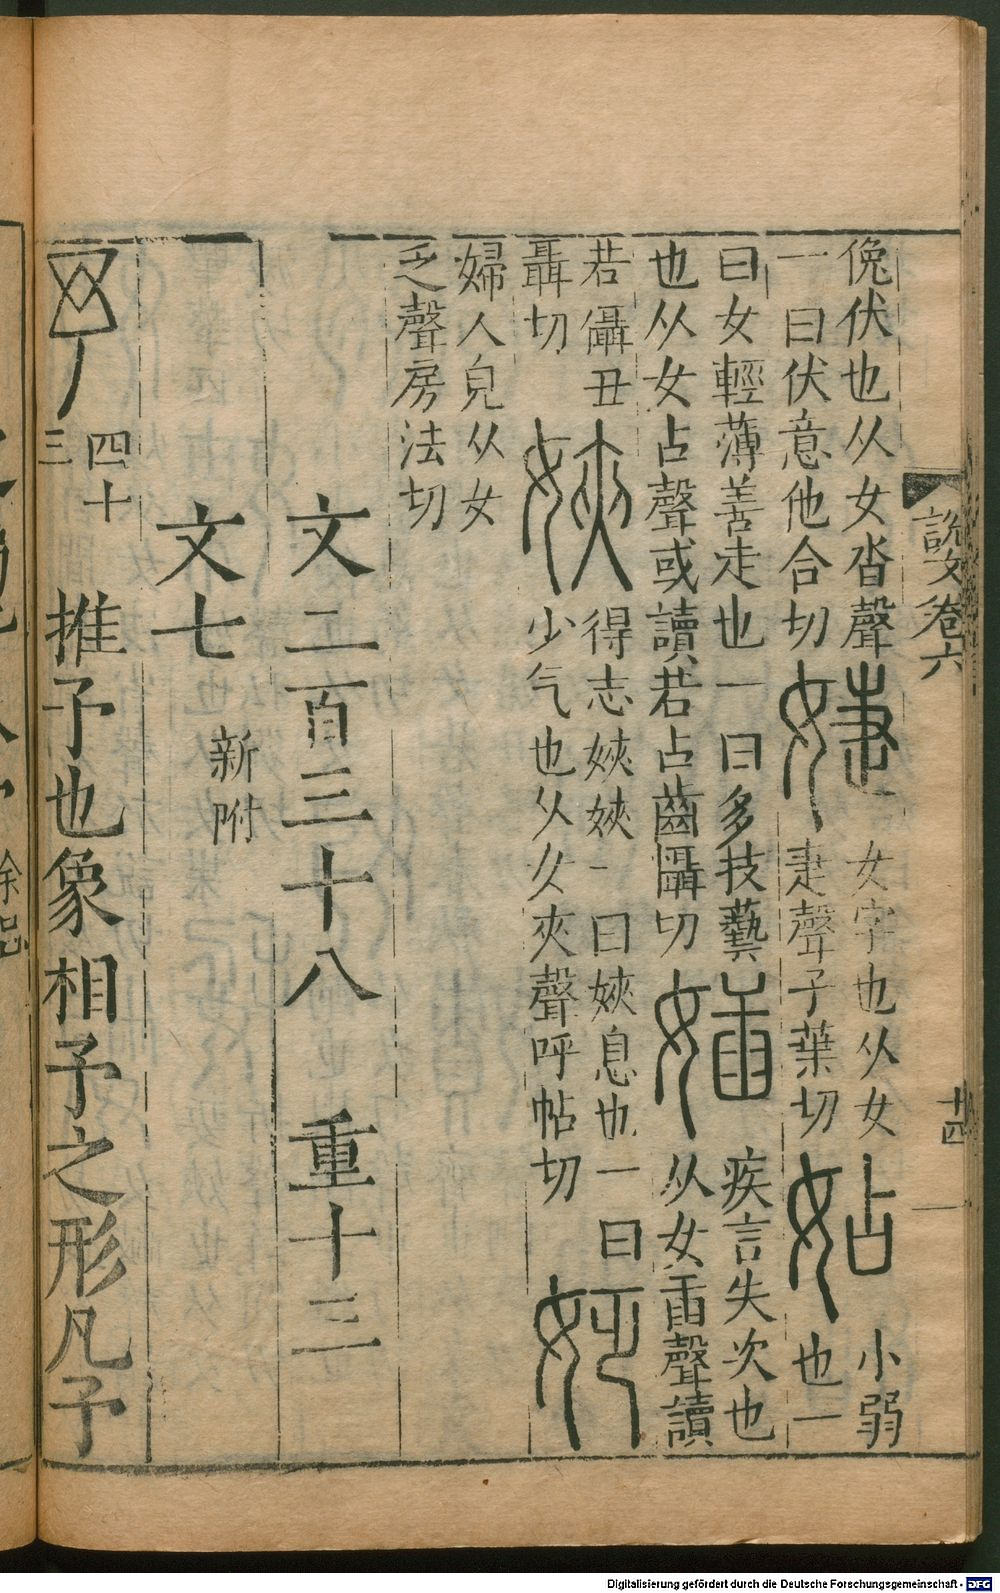 說文卷六
十四
俛伏也从女沓聲
一曰伏意他合切
婕
女字也从女
疌聲子葉切
㚲
小弱
也一
曰女輕薄善走也一曰多技藝
也从女占聲或讀若占齒懾切
㛼
疾言失次也
从女臿聲讀
若懾丑
聶切
㛍
得志㛍㛍一曰㛍息也一曰
少气也从女夾聲呼帖切
姂
婦人皃从女
乏聲房法切
文二百三十八　重十三
文七　新附
予
四十
三
推予也象相予之形凡予
Digitalisierung gefördert durch die Deutsche Forschungsgemeinschaft - DFG